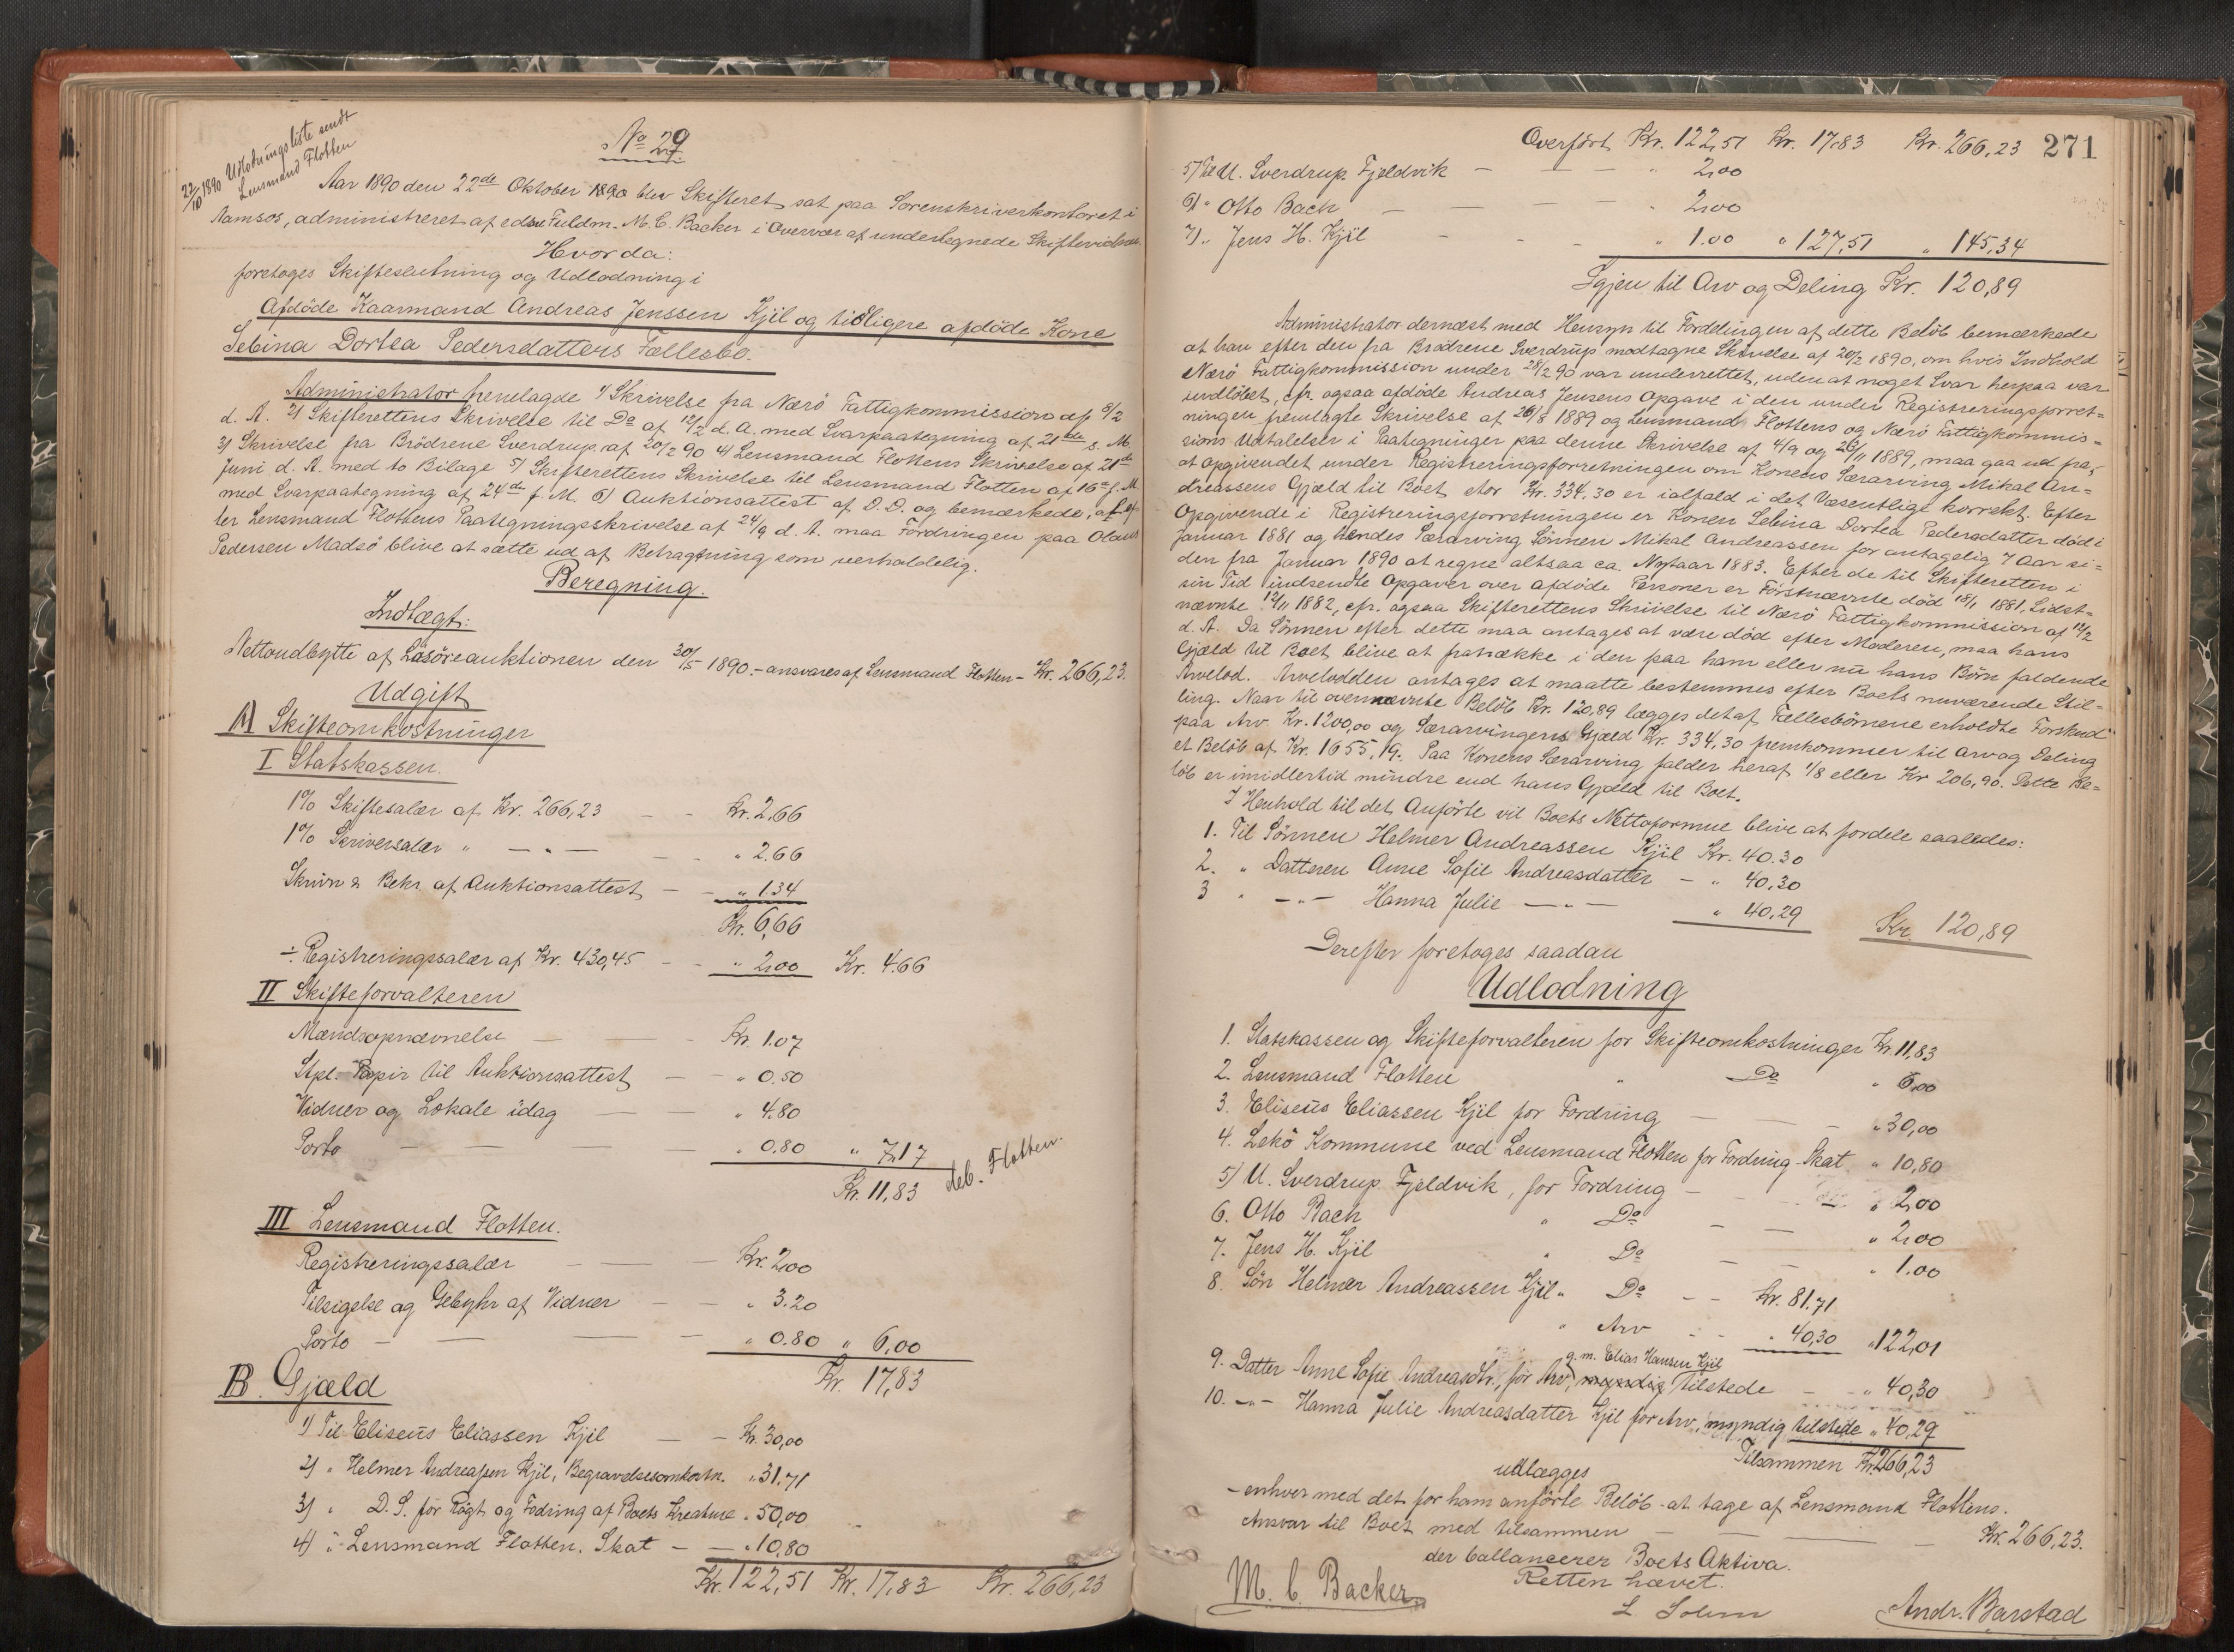 22/10 1890 Udlodningsliste sendt
Lensmand Flotten
No 29
Aar 1890 den 22de Oktober 1890 blev Skifteret sat paa Sorenskriverkontoret i
Namsos, administreret af edsv Fuldm. M. C. Backer i Overvær af undertegnede Skiftevidner.
Hvor da:
foretoges Skifteslutning og Udlodning i
Afdöde Kaarmand Andreas Jenssen Kjil og tidligere afdöde Kone
Sebina Dortea Pedersdatters Fællesbo.
Administrator fremlagde 1/ Skrivelse fra Nærö Fattigkommission af 8/2
d. A. 2/ Skifterettens Skrivelse til Do af 12/2 d. A. med Svarpaategning af 21de s. M.
3/ Skrivelse fra Brödrene Sverdrup af 20/2 90 4/ Lensmand Flottens Skrivelse af 21de
Juni d. A. med to Bilage 5/ Skifterettens Skrivelse til Lensmand Flotten af 16de f. M.
med Svarpaategning af 24de f. M. 6/ Auktionsattest af D. D. og bemærkede, at ef-
ter Lensmand Flottens Paategningsskrivelse af 24/9 d. A. maa Fordringen paa Olaus
Pedersen Madsö blive at sætte ud af Betragtning som uerholdelig.
Beregning.
Indlægt:
Nettoudbytte af Lösöreauktionen den 30/5 1890 – ansvares af Lensmand Flotten – Kr. 266,23.
Udgift
A) Skifteomkostninger
I Statskassen.
1% Skiftesalær af Kr. 266,23 – – Kr. 2.66
1% Skriversalær " – " – – " 2.66
Skrivn & Bekr. af Auktionsattest – – " 1.34
Kr. 6,66
÷ Registreringssalær af Kr. 430,45 – – " 2,00 Kr. 4.66
II Skifteforvalteren
Mændsopnævnelse – – Kr. 1.07
Stpl. Papir til Auktionsattest – – " 0.50
Vidner og Lokale idag – – " 4.80
Porto – – – – " 0.80 " 7,17
Kr. 11,83 deb. Flotten.
III Lensmand Flotten.
Registreringssalær – – Kr. 2,00
Tilsigelse og Gebyhr af Vidner – – " 3.20
Porto – – – – " 0.80 " 6,00
Kr. 17,83
B. Gjæld
1) Til Eliseus Eliassen Kjil – – Kr. 30,00
2) " Helmer Andreassen Kjil, Begravelsesomkostn. " 31.71
3) " D. S. for Rögt og Fodring af Boets Kreature " 50,00
4) " Lensmand Flotten. Skat – – " 10,80
Kr. 122,51 Kr. 17,83 Kr. 266,23
Overfört Kr. 122,51 Kr. 17,83 Kr. 266,23 271
5/ Til U. Sverdrup. Fjeldvik – – – " 2,00
6/ " Otto Bach – – – – " 2,00
7/ " Jens H. Kjil – – – " 1.00 " 127,51 " 145,34
Igjen til Arv og Deling Kr. 120,89
Administrator dernæst med Hensyn til Fordelingen af dette Belöb bemærkede
at han efter den fra Brödrene Sverdrup modtagne Skrivelse af 20/2 1890, om hvis Indhold
Nærö Fattigkommission under 28/2 90 var underrettet, uden at noget Svar herpaa var
indlöbet, cfr. ogsaa afdöde Andreas Jensens Opgave i den under Registreringsforret-
ningen fremlagte Skrivelse af 26/8 1889 og Lensmand Flottens og Nærö Fattigkommis-
sions Udtalelser i Paategninger paa denne Skrivelse af 4/9 og 26/11 1889, maa gaa ud fra,
at Opgivendet under Registreringsforretningen om Konens Særarving Mikal An-
dreassens Gjæld til Boet stor Kr. 334,30 er ialfald i det Væsentlige korrekt. Efter
Opgivende i Registreringsforretningen er Konen Sebina Dortea Pedersdatter död i
Januar 1881 og hendes Særarving Sönnen Mikal Andreassen for antagelig 7 Aar si-
den fra Januar 1890 at regne altsaa ca. Nytaar 1883. Efter de til Skifteretten i
sin Tid indsendte Opgaver over afdöde Personer er Förstnævnte död 18/1 1881, Sidst-
nævnte 12/11 1882, cfr. ogsaa Skifterettens Skrivelse til Nærö Fattigkommission af 12/2
d. A. Da Sönnen efter dette maa antages at være död efter Moderen, maa hans
Gjæld til Boet blive at fratrække i den paa ham eller nu hans Börn faldende
Arvelod. Arvelodden antages at maatte bestemmes efter Boets nuværende Stil-
ling. Naar til ovennævnte Belöb Kr. 120,89 lægges det af Fællesbörnene erholdte Forskud
paa Arv Kr. 1200,00 og Særarvingens Gjæld Kr. 334,30 fremkommer til Arv og Deling
et Belöb af Kr. 1655,19. Paa Konens Særarving falder heraf 1/8 eller Kr 206,90. Dette Be-
löb er imidlertid mindre end hans Gjæld til Boet.
I Henhold til det Anförte vil Boets Nettoformue blive at fordele saaledes:
1. Til Sönnen Helmer Andreassen Kjil Kr. 40.30
2. " Datteren Anne Sofie Andreasdatter – " 40,30
3 " – " – Hanna Julie – " – " 40,29 Kr. 120,89
Derefter foretoges saadan
Udlodning
1. Statskassen og Skifteforvalteren for Skifteomkostninger Kr. 11,83
2. Lensmand Flotten " Do " 6,00
3. Eliseus Eliassen Kjil for Fordring – – " 30,00
4. Lekö Kommune ved Lensmand Flotten for Fordring – Skat " 10,80
5) U. Sverdrup. Fjeldvik, for Fordring – – " 2,00
6. Otto Bach " Do – – " 2,00
7. Jens H. Kjil " Do – – " 1.00
8. Sön Helmer Andreassen Kjil " Do – – Kr. 81.71
" Arv – – " 40,30 " 122,01
g. m. Elias Hansen Kjil
9. Datter Anne Sofie Andreasdtr., for Arv, myndig tilstede – – " 40,30
10. – " – Hanna Julie Andreasdatter Kjil for Arv, myndig tilstede " 40,29
Tilsammen Kr. 266,23
udlægges
– enhver med det for ham anförte Belöb – at tage af Lensmand Flottens.
Ansvar til Boet med tilsammen – – – Kr. 266,23.
der ballancerer Boets Aktiva.
Retten hævet.
M. C. Backer
L. Solem
Andr. Barstad